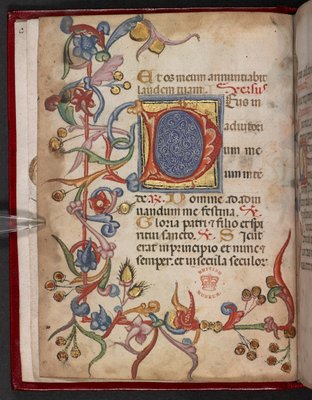 Et os meum annuntiabit
laudem tuam. Versus
Deus in
adiutori
um me
um inte
de. R. Domine ad adiu
uandum me festina. R.
Gloria patri & filio et spi
ritui sancto. R. Sicut
erat in principio et nunc et
semper. et in secula seculor
BRITISH
MUSEUM